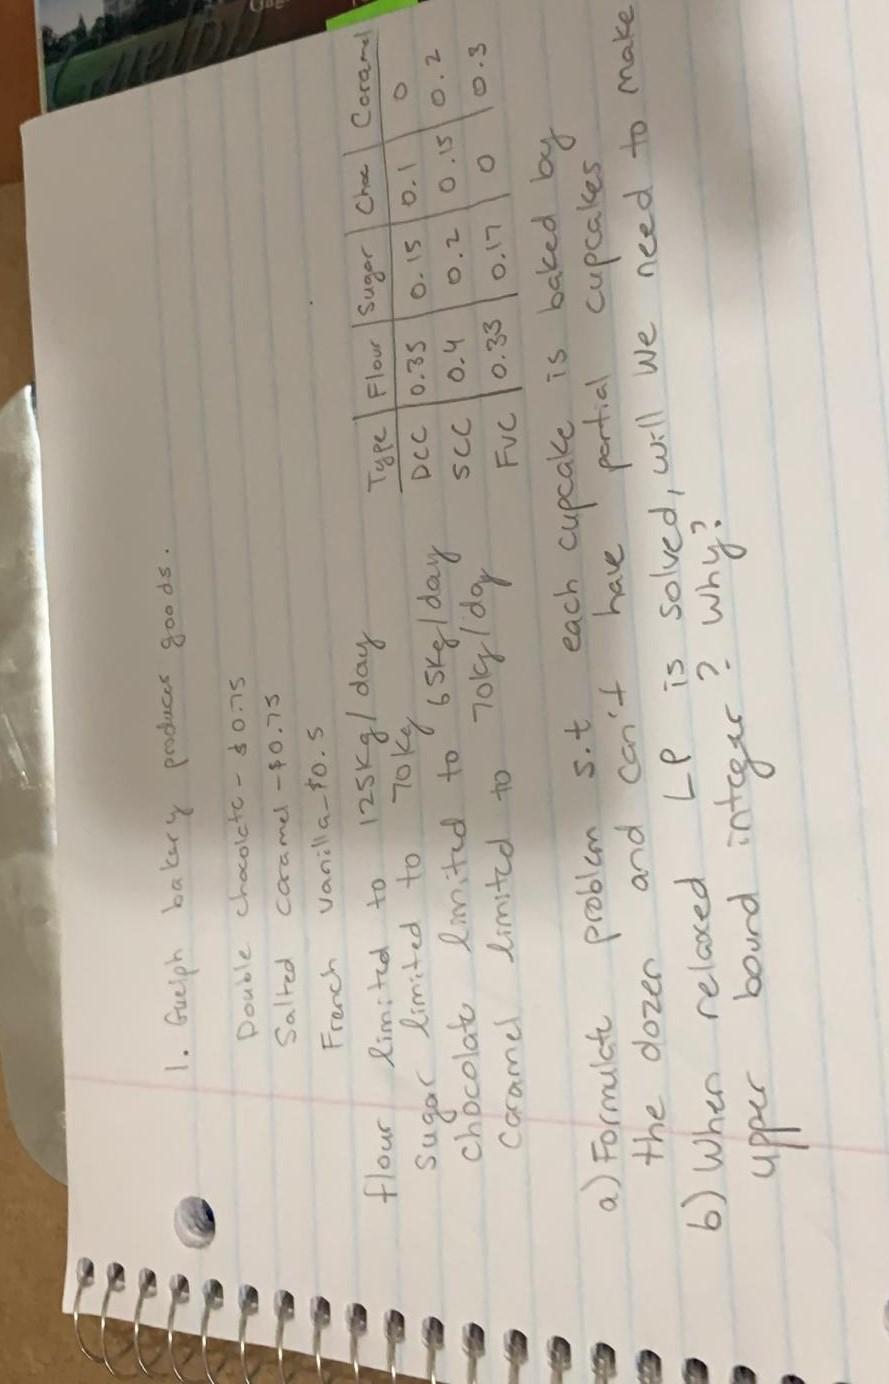 Guelph
1. Guelph bakery produces goods.
Double chocolate - $0.75
Salted caramel - $0.75
French vanilla - $0.5
flour limited to 125kg/day
Sugar limited to 70kg
chocolate limited to 65kg/day
Caramel limited to 70kg/day
Type | Flour | Sugar | Choc | Caramel
DCC | 0.35 | 0.15 | 0.1 | 0
SCC | 0.4 | 0.2 | 0.15 | 0.2
FVC | 0.33 | 0.17 | 0 | 0.3
a) Formulate problem s.t each cupcake is baked by
the dozen and can't have partial cupcakes
b) When relaxed LP is solved, will we need to make
upper bound integer? Why?